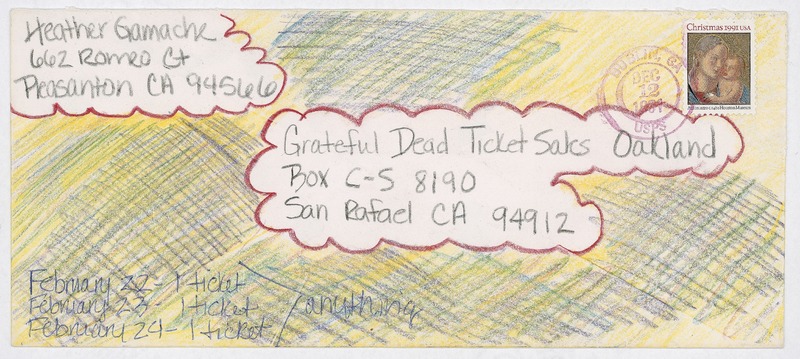 Heather Gamache
662 Romeo Ct
Pleasanton CA 94566
Christmas 1991 USA
DUBLIN, CA
DEC
12
1991
USPS
Grateful Dead Ticket Sales Oakland
Box C-S 8190
San Rafael CA 94912
February 22- 1 ticket
February 23- 1 ticket / anything
February 24- 1 ticket